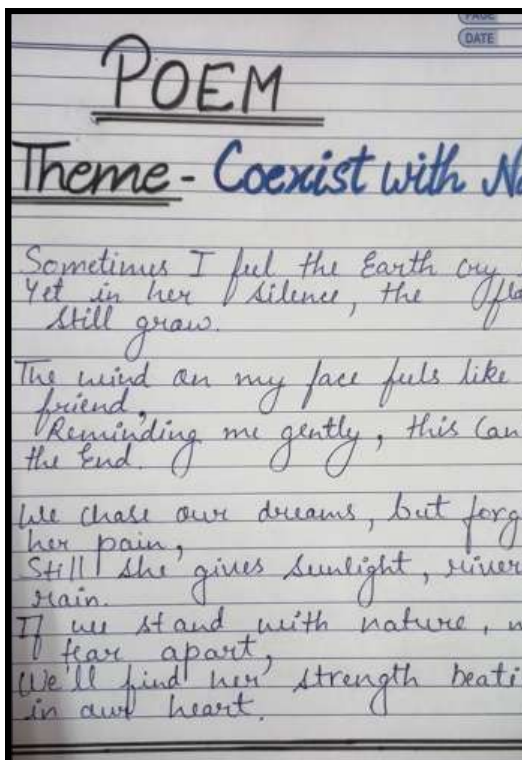 PAGE
DATE
POEM
Theme - Coexist with Na
Sometimes I feel the Earth cry
Yet in her silence, the flo
still grow.
The wind on my face feels like
friend,
Reminding me gently, this can
the End.
We chase our dreams, but forg
her pain,
Still she gives sunlight, river
rain.
If we stand with nature,
fear apart,
We'll find her strength beati
in our heart.